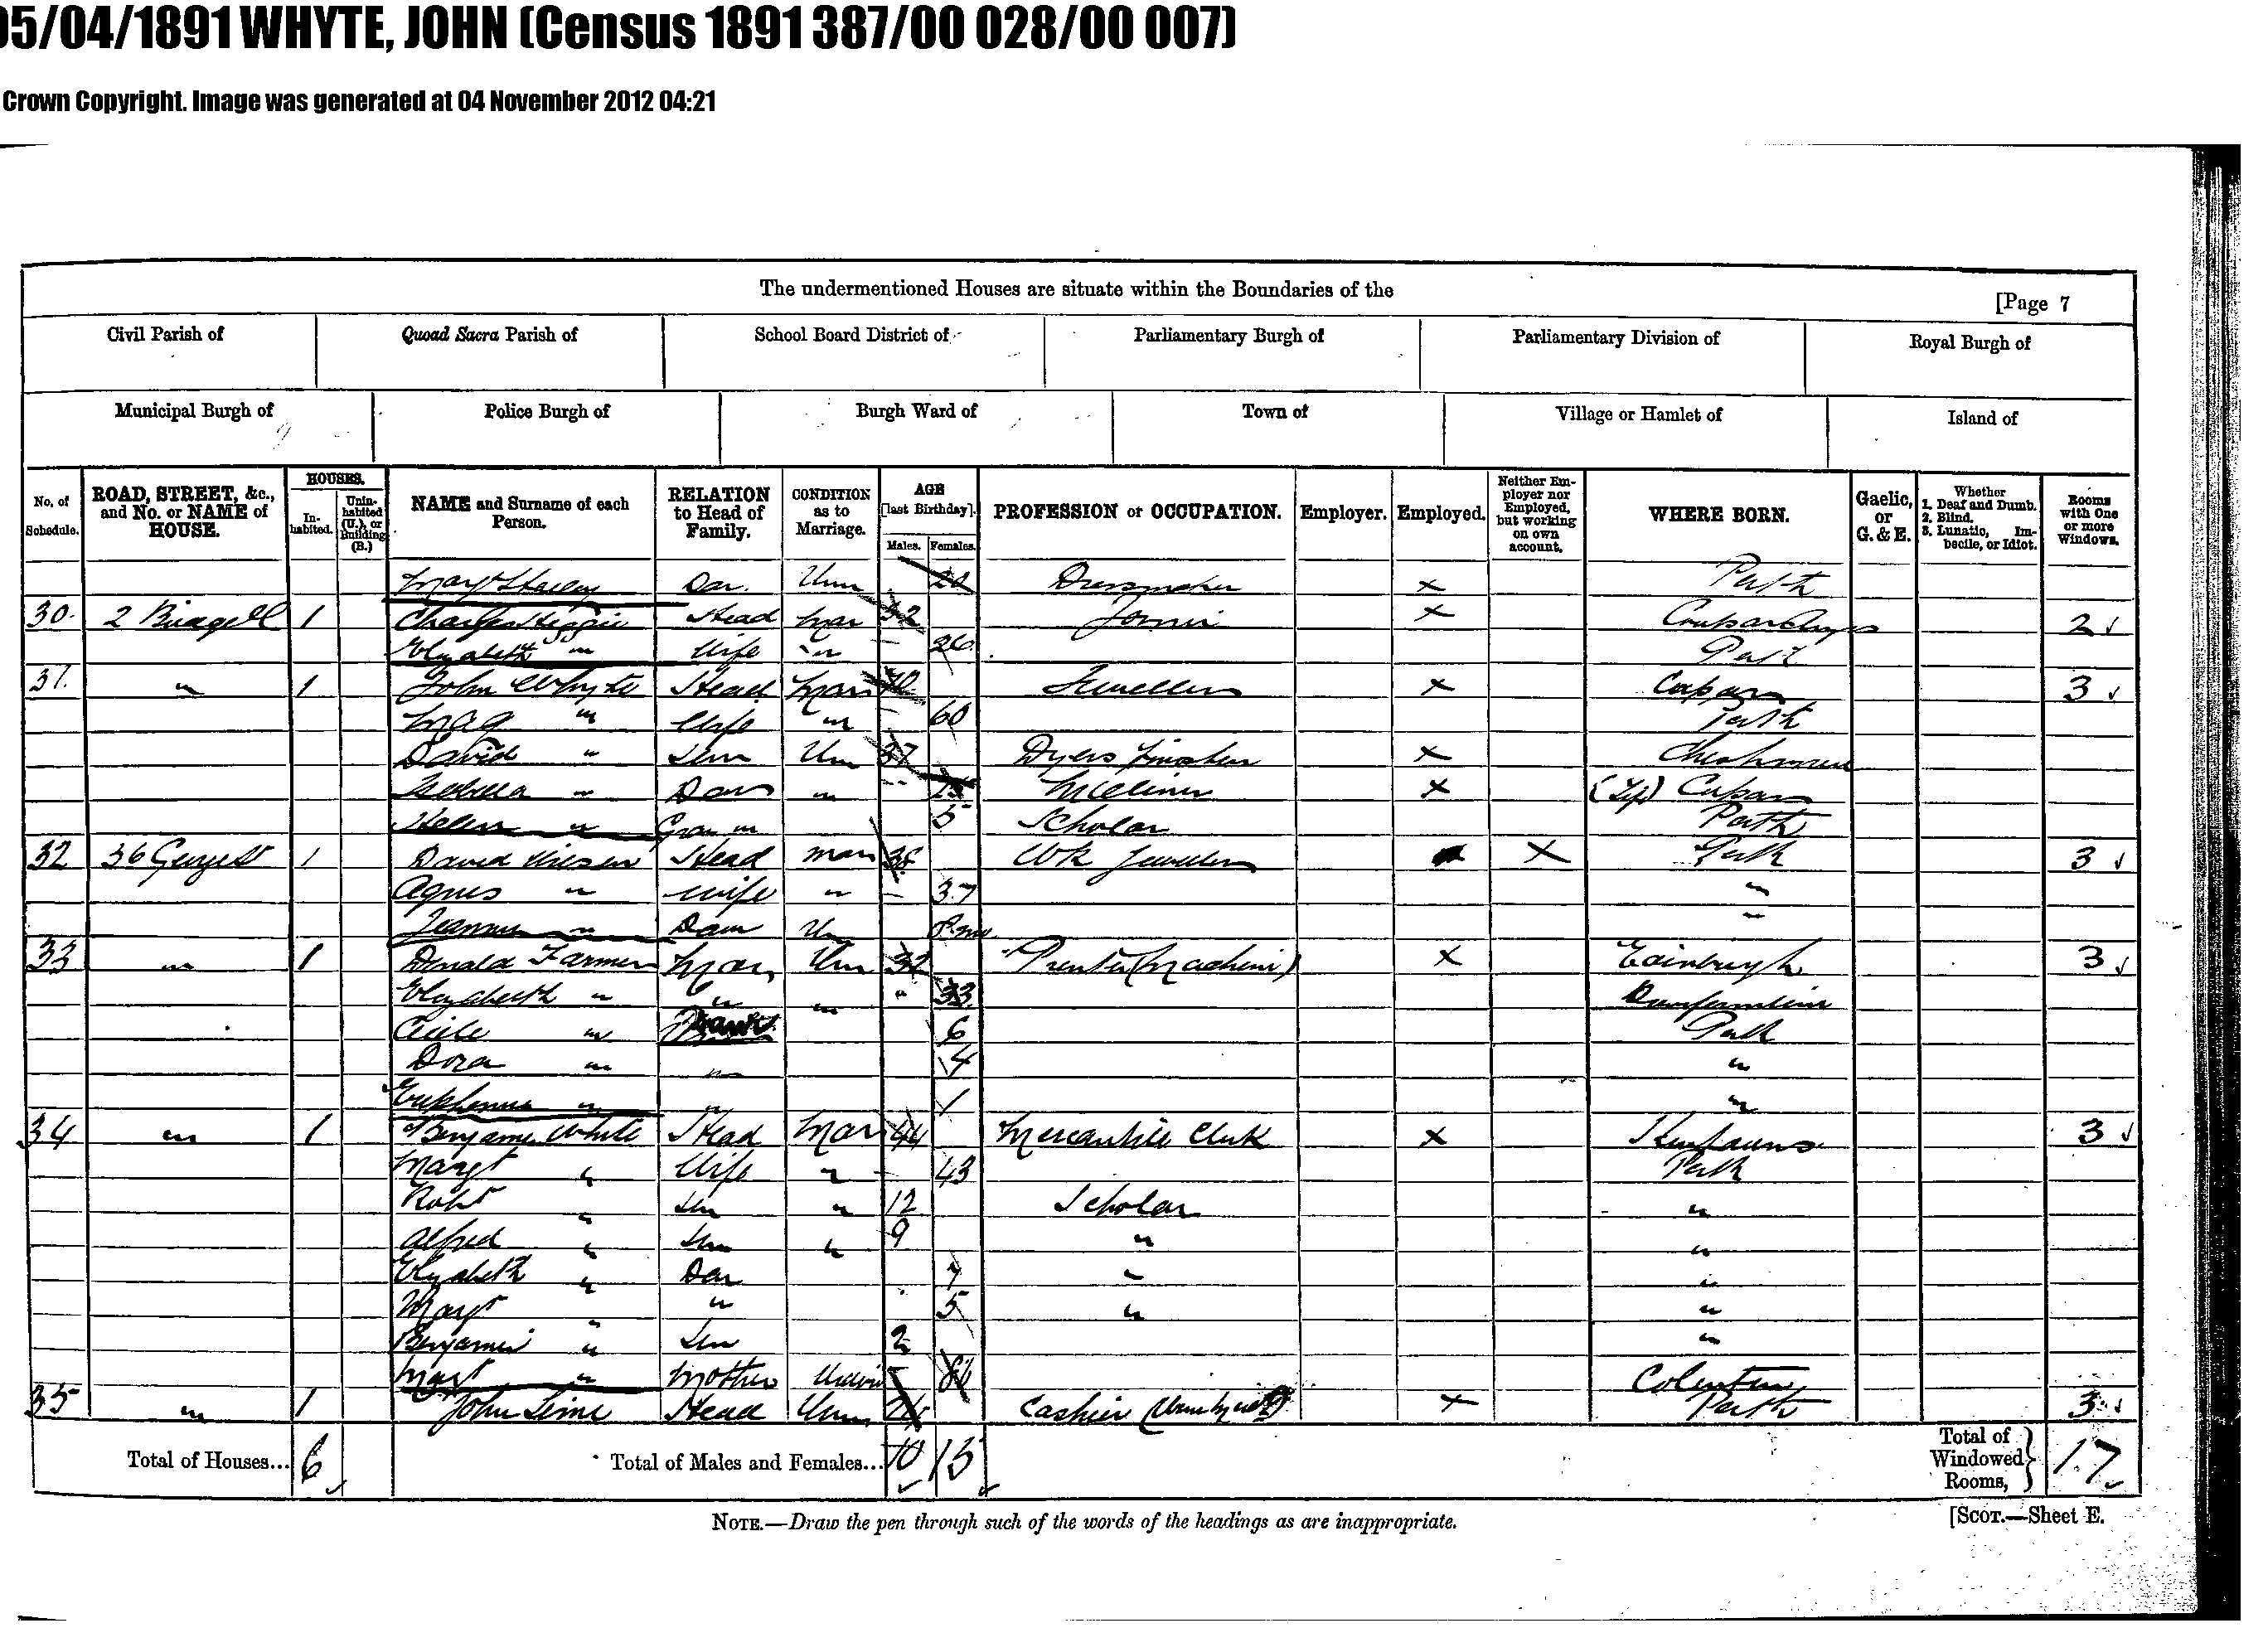 05/04/1891 WHYTE, JOHN (Census 1891 387/00 028/00 007)
Crown Copyright. Image was generated at 04 November 2012 04:21
The undermentioned Houses are situate within the Boundaries of the
[Page 7
Civil Parish of Quoad Sacra Parish of School Board District of Parliamentary Burgh of Parliamentary Division of Royal Burgh of
Municipal Burgh of Police Burgh of Burgh Ward of Town of Village or Hamlet of Island of
No. of Schedule. ROAD, STREET, &c., and No. or NAME of HOUSE. HOUSES. Inhabited. Uninhabited (U.), or Building (B.) NAME and Surname of each Person. RELATION to Head of Family. CONDITION as to Marriage. AGE [last Birthday]. Males. Females. PROFESSION or OCCUPATION. Employer. Employed. Neither Employer nor Employed, but working on own account. WHERE BORN. Gaelic, or G. & E. Whether 1. Deaf and Dumb. 2. Blind. 3. Lunatic, Imbecile, or Idiot. Rooms with One or more Windows.
Margt Dar. Unm Dressmaker × Perth
30. 2 1 Charles Heggie Head Mar 32 Joiner × 2 ✓
Elizabeth " Wife " 26 Perth
31. " 1 John Whyte Head Mar Jeweller × Cupar 3 ✓
Mag " Wife " 60 Perth
David " Son Un 27 Dyers Finisher ×
Isabella " Daur " Milliner × Cupar
Helen " Gran " 5 Scholar Perth
32 36 George St 1 David Head Mar 38 Jeweller × Perth 3 ✓
Agnes " Wife " 37 "
" Daur Un "
33 " 1 Donald Farmer Mar Un 32 Printer (Machine) × Edinburgh 3 ✓
Elizabeth " " " 33 Dunfermline
Cecile " 6 Perth
Dora " " 4 "
Euphemia " " 1 "
34 " 1 Benjamin White Head Mar 44 Mercantile Clerk × Kinfauns 3 ✓
Margt " Wife " 43 Perth
Robt " Son " 12 Scholar "
Alfred " Son " 9 " "
Elizabeth " Dar 7 " "
Margt " " 5 " "
Benjamin " Son 2 "
Margt " Mother Widow
35 " 1 John Head Unm Cashier × Perth 3 ✓
Total of Houses... 6 Total of Males and Females... 10 15 Total of Windowed Rooms, 17
NOTE.—Draw the pen through such of the words of the headings as are inappropriate.
[SCOT.—Sheet E.